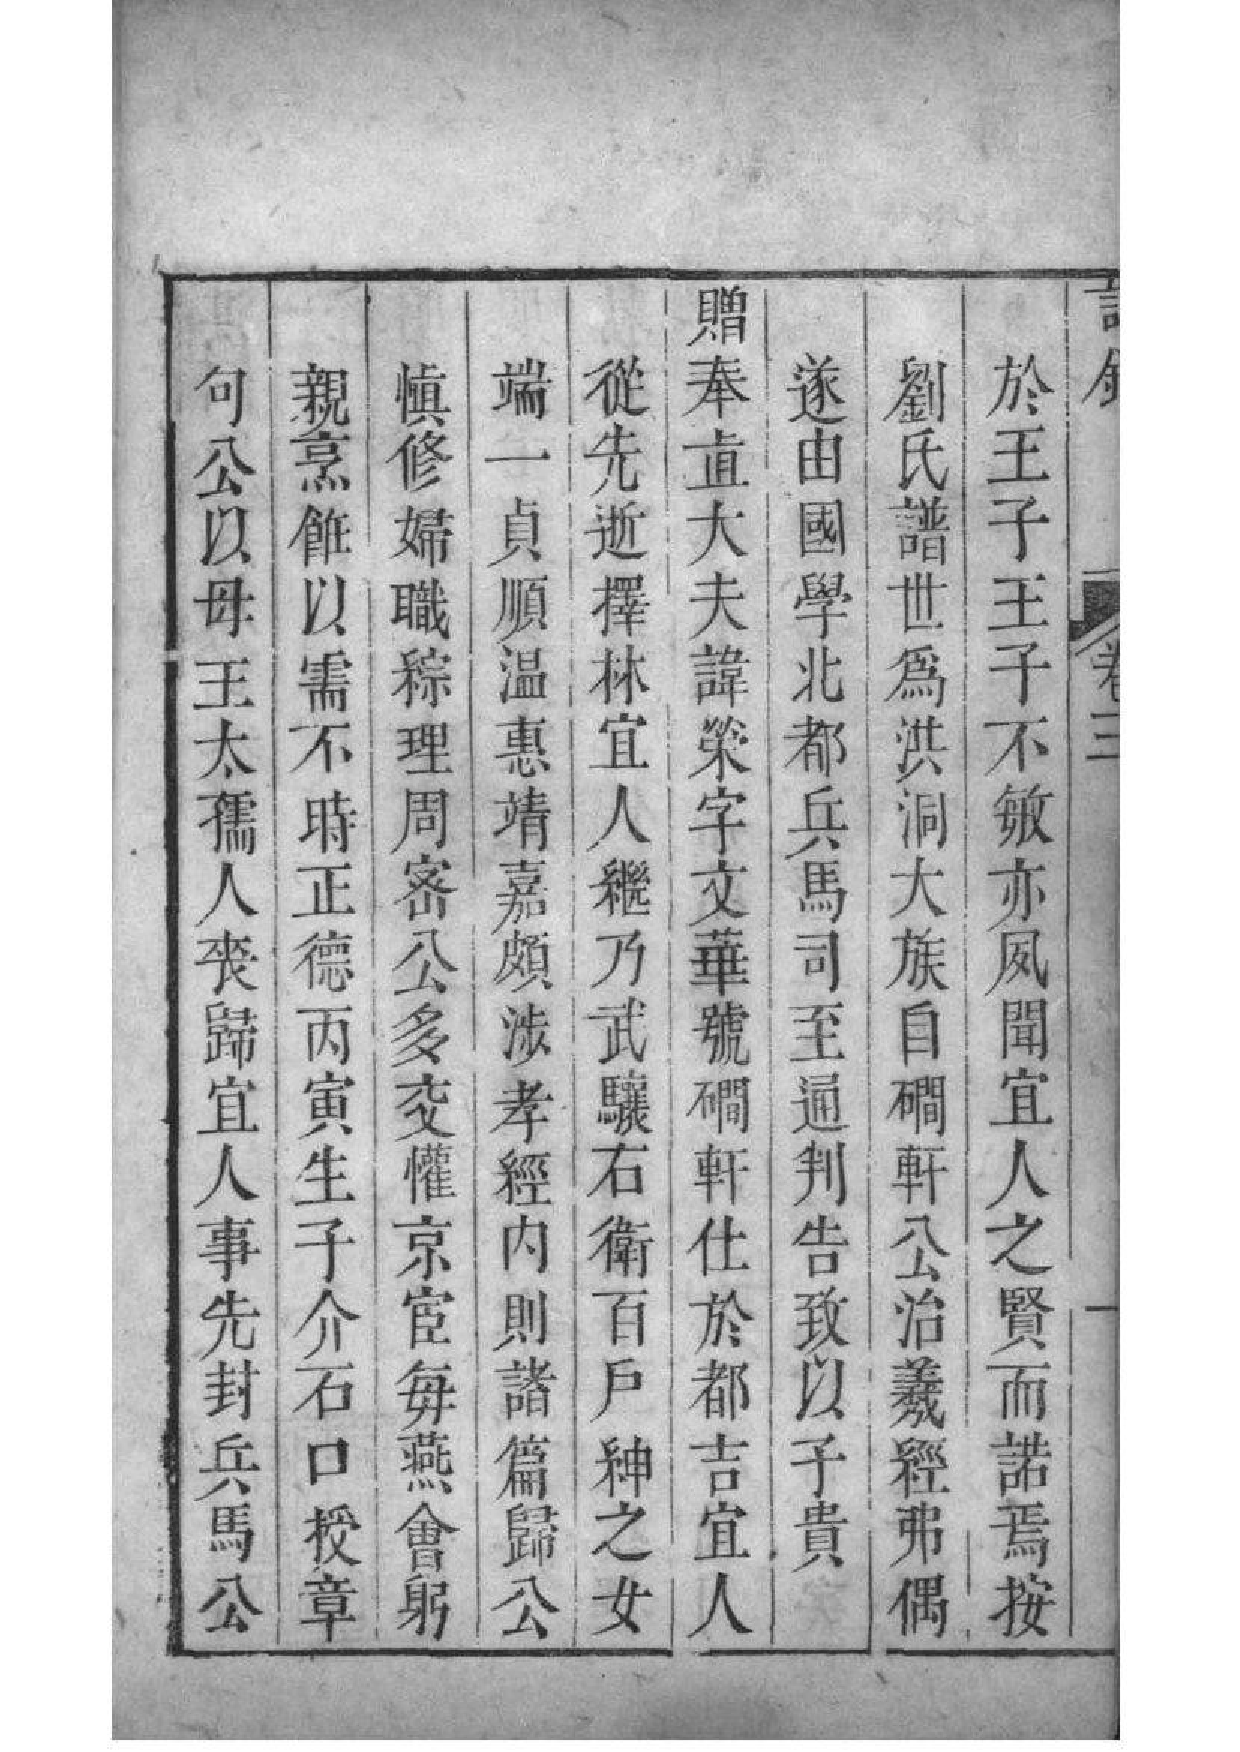 卷三
於王子王子不敏亦夙聞宜人之賢而諾焉按
劉氏譜世爲洪洞大族自磵軒公治羲經弗偶
遂由國學北都兵馬司至通判告致以子貴
贈奉直大夫諱榮字文華號磵軒仕於都吉宜人
從先逝擇林宜人繼乃武驤右衛百戶紳之女
端一貞順溫惠靖嘉頗涉孝經内則諸篇歸公
慎修婦職綜理周密公多交懽京宦每燕會躬
親烹飪以需不時正德丙寅生子介石口授章
句公以母王太孺人喪歸宜人事先封兵馬公